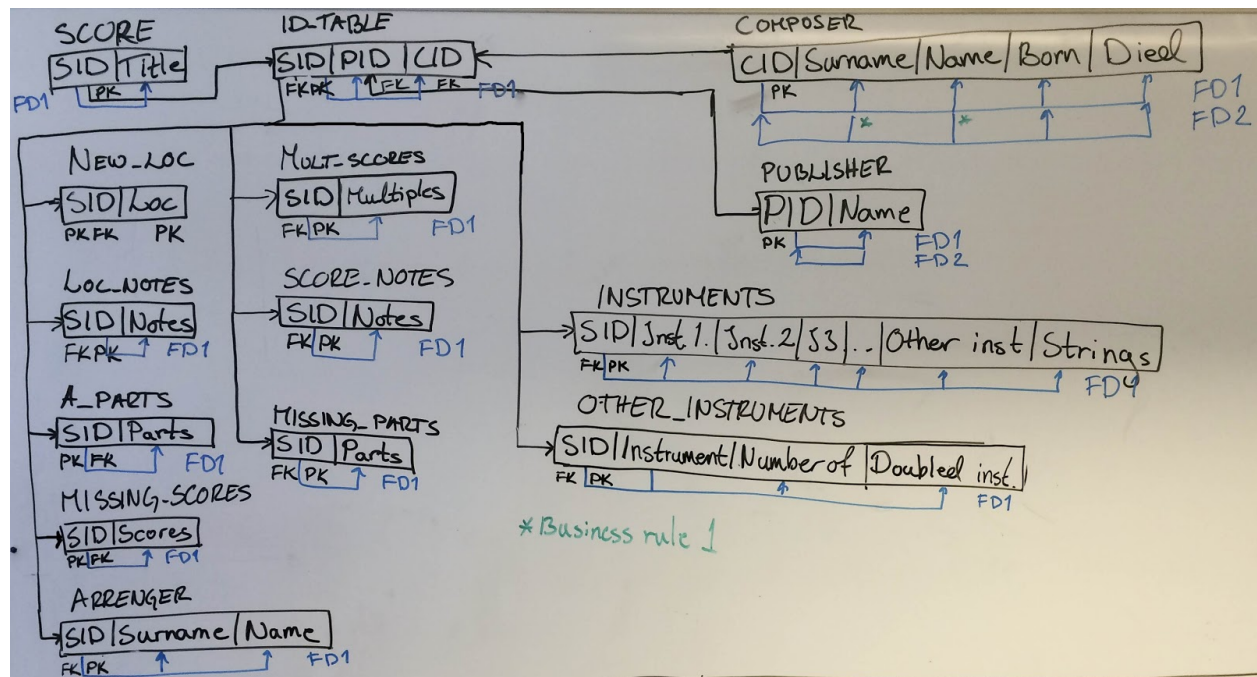 SCORE
SID Title
PK
FD1
ID_TABLE
SID PID CID
FK PK FK FK FD1
COMPOSER
CID Surname Name Born Died
PK FD1
* * FD2
NEW_LOC
SID Loc
PK FK PK
MULT_SCORES
SID Multiples
FK PK FD1
PUBLISHER
PID Name
PK FD1
FD2
LOC_NOTES
SID Notes
FK PK FD1
SCORE_NOTES
SID Notes
FK PK FD1
INSTRUMENTS
SID Inst.1. Inst.2 I3 .. Other inst Strings
FK PK FD4
A_PARTS
SID Parts
PK FK FD1
MISSING_PARTS
SID Parts
FK PK FD1
OTHER_INSTRUMENTS
SID Instrument Number of Doubled inst.
FK PK FD1
MISSING_SCORES
SID Scores
PK FK FD1
* Business rule 1
ARRENGER
SID Surname Name
FK PK FD1